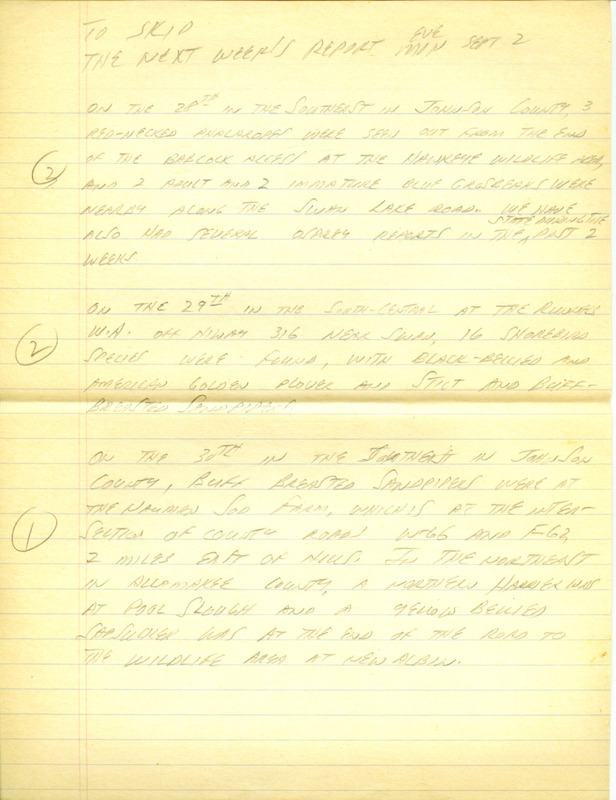 TO SKIP
THE NEXT WEEK'S REPORT EVE MON SEPT 2
ON THE 28TH IN THE SOUTHEAST IN JOHNSON COUNTY, 3
RED-NECKED PHALAROPES WERE SEEN OUT FROM THE END
OF THE BABCOCK ACCESS AT THE HAWKEYE WILDLIFE AREA,
(2) AND 2 ADULT AND 2 IMMATURE BLUE GROSBEAKS WERE
NEARBY ALONG THE SWAN LAKE ROAD. WE HAVE
ALSO HAD SEVERAL OSPREY REPORTS IN THE STATE DURING THE PAST 2
WEEKS.
ON THE 29TH IN THE SOUTH-CENTRAL AT THE RUNNELLS
(2) W.A. OFF HIWAY 316 NEAR SWAN, 16 SHOREBIRD
SPECIES WERE FOUND, WITH BLACK-BELLIED AND
AMERICAN GOLDEN PLOVER AND STILT AND BUFF-
BREASTED SANDPIPERS
ON THE 30TH IN THE IN JOHNSON
COUNTY, BUFF BREASTED SANDPIPERS WERE AT
THE NAUMAN SOD FARM, WHICH IS AT THE INTER-
(1) SECTION OF COUNTY ROADS W66 AND F-62,
2 MILES EAST OF HILLS. IN THE NORTHEAST
IN ALLAMAKEE COUNTY, A NORTHERN HARRIER WAS
AT POOL SLOUGH AND A YELLOW BELLIED
SAPSUCKER WAS AT THE END OF THE ROAD TO
THE WILDLIFE AREA AT NEW ALBIN.